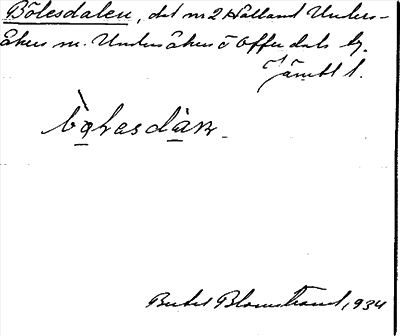 Bölesdalen, det nr 2 Hålland Unders-
åkers sn. Undersåkers o Offerdals tg.
Jämtl l.
Bertil Blomstrand, 1934